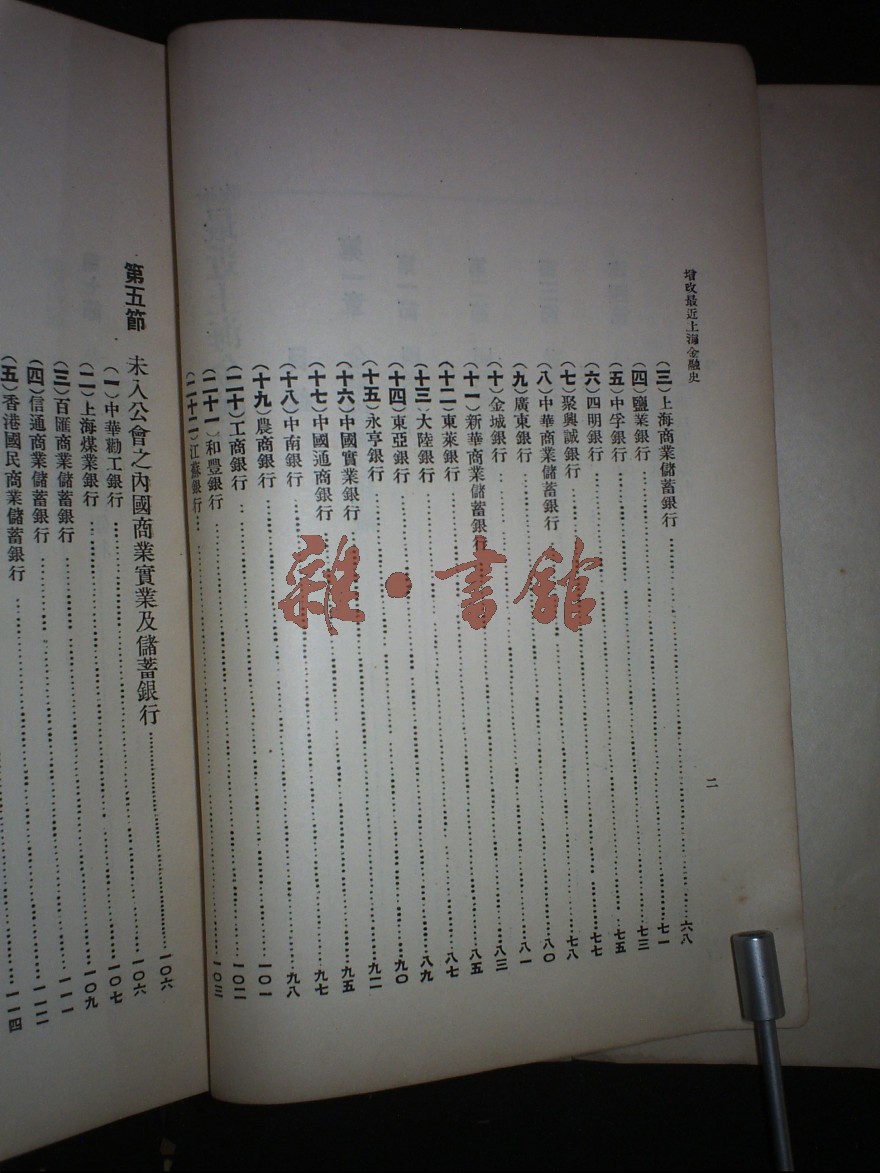 增改最近上海金融史
二
(三)上海商業儲蓄銀行……六八
(四)鹽業銀行……七一
(五)中孚銀行……七三
(六)四明銀行……七五
(七)聚興誠銀行……七七
(八)中華商業儲蓄銀行……七八
(九)廣東銀行……八〇
(十)金城銀行……八一
(十一)新華商業儲蓄銀行……八三
(十二)東萊銀行……八五
(十三)大陸銀行……八七
(十四)東亞銀行……八九
(十五)永亨銀行……九〇
(十六)中國實業銀行……九二
(十七)中國通商銀行……九五
(十八)中南銀行……九七
(十九)農商銀行……九八
(二十)工商銀行……一〇一
(二十一)和豐銀行……一〇二
(二十二)江蘇銀行……一〇三
第五節 未入公會之內國商業實業及儲蓄銀行……一〇六
(一)中華勸工銀行……一〇六
(二)上海煤業銀行……一〇七
(三)百匯商業儲蓄銀行……一〇九
(四)信通商業儲蓄銀行……一一一
(五)香港國民商業儲蓄銀行……一一二
一一四
雜·書館